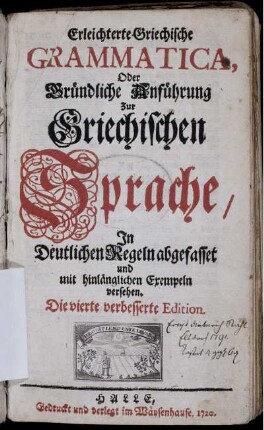 Erleichterte Griechische
GRAMMATICA,
Oder
Gründliche Anführung
Zur
Griechischen
Sprache/
In
Deutlichen Regeln abgefasset
und
mit hinlänglichen Exempeln
versehen.
Die vierte verbesserte Edition.
HALLE,
Gedruckt und verlegt im Wäysenhause. 1720.